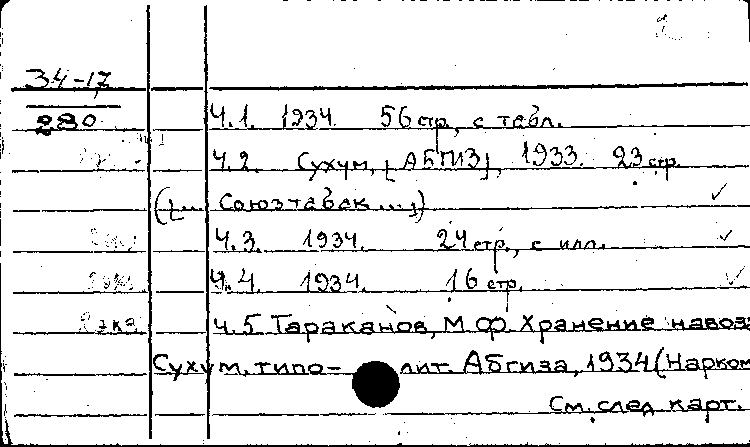 2
34-17
280
Ч.1. 1934 56 стр., с табл.
Ч.2. Сухум, [АБГИЗ], 1933. 23 стр.
([... Союзтабак ...])
Ч.3. 1934. 24 стр., с илл.
Ч.4. 1934. 16 стр.
2 экз Ч.5 Тараканов, М.Ф. Хранение навоз
Сухум, типо-лит. Абгиза, 1934 (Нарком
См. след карт.